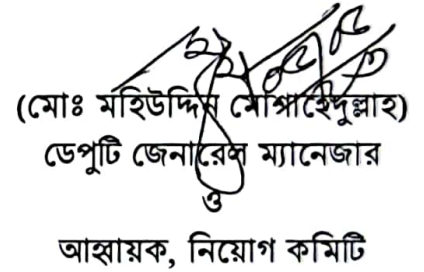 (মোঃ মহিউদ্দিন মোসাহেদুল্লাহ)
ডেপুটি জেনারেল ম্যানেজার
ও
আহ্বায়ক, নিয়োগ কমিটি